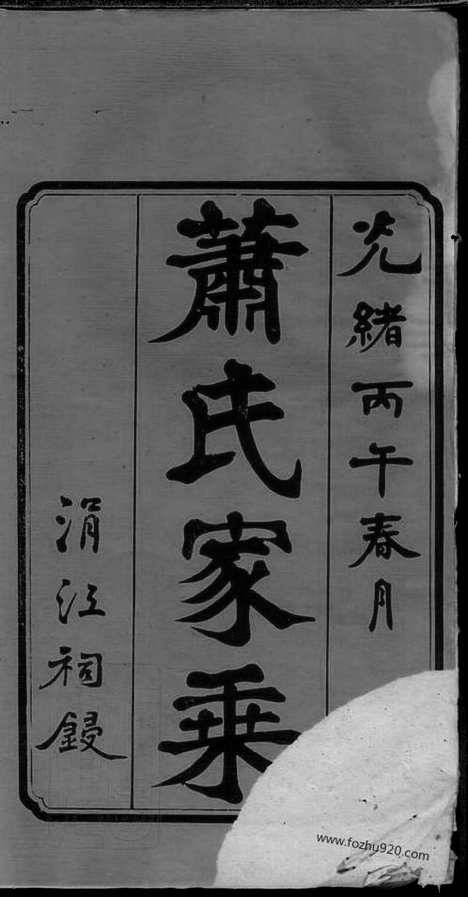 光緒丙午春月
蕭氏家乘
涓江祠鋟
www.fozhu920.com